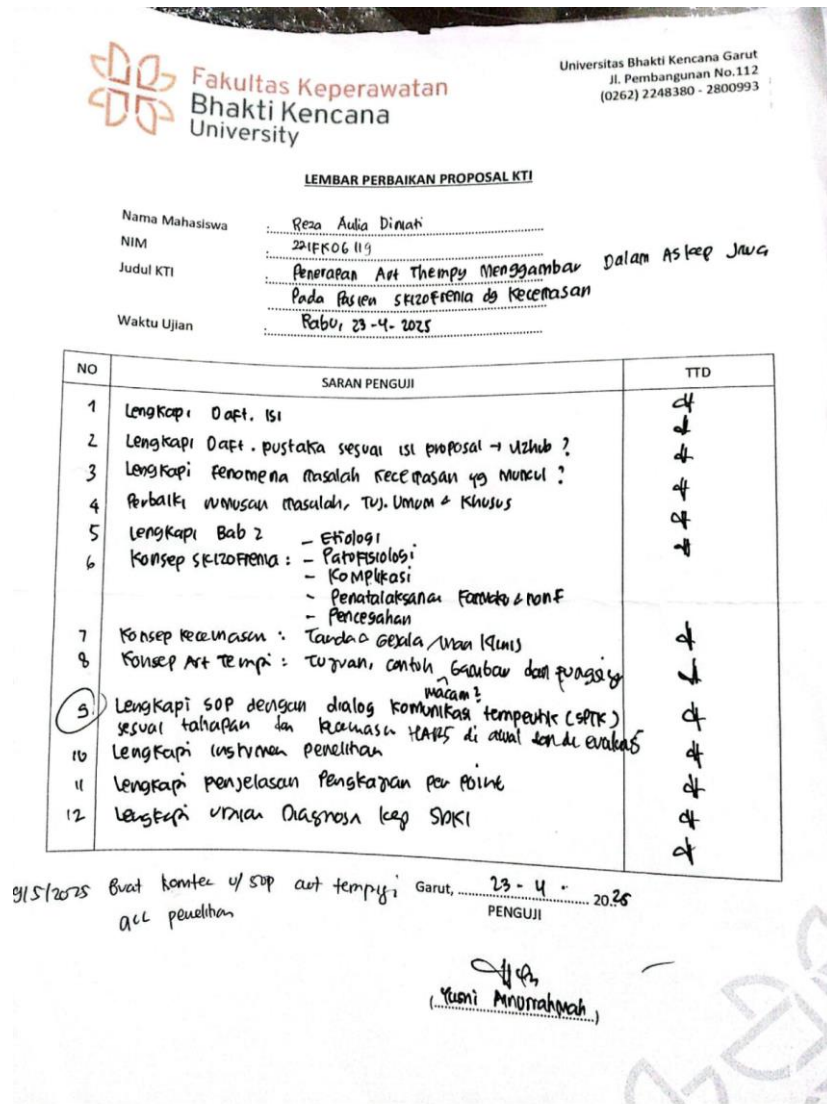 Fakultas Keperawatan
Bhakti Kencana
University
Universitas Bhakti Kencana Garut
Jl. Pembangunan No.112
(0262) 2248380 - 2800993
LEMBAR PERBAIKAN PROPOSAL KTI
Nama Mahasiswa : Reza Aulia
NIM : 221FK06119
Judul KTI : Penerapan Art Therapy Menggambar Dalam Askep Jiwa
Pada Pasien Skizofrenia dg Kecemasan
Waktu Ujian : Rabu, 23-4-2025
NO SARAN PENGUJI TTD
1 Lengkapi Daft. Isi
2 Lengkapi Daft. pustaka sesuai isi proposal →
3 Lengkapi fenomena masalah kecemasan yg muncul ?
4 Perbaiki rumusan masalah, Tuj. Umum & Khusus
5 Lengkapi Bab 2
6 Konsep Skizofrenia : - Etiologi
- Patofisiologi
- Komplikasi
- Penatalaksanaan Farmako & nonf
- Pencegahan
7 Konsep kecemasan : Tanda & Gejala
8 Konsep Art Terapi : Tujuan, contoh Gambar dan fungsinya
macam2
9. Lengkapi SOP dengan dialog komunikasi terapeutik (SPTK)
sesuai tahapan dan HARS di awal dan di evaluasi
10 Lengkapi instrumen penelitian
11 Lengkapi penjelasan Pengkajian per point
12 Lengkapi uraian Diagnosa kep SDKI
9/5/2025 Buat u/ SOP art terapi
acc penelitian
Garut, 23 - 4 - 2025
PENGUJI